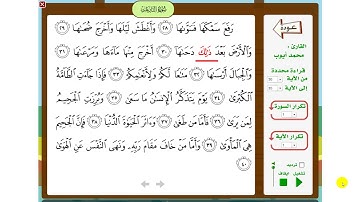 سُورَةُ النَّازِعَاتِ
رَفَعَ سَمْكَهَا فَسَوَّىٰهَا ٢٨ وَأَغْطَشَ لَيْلَهَا وَأَخْرَجَ ضُحَىٰهَا ٢٩
وَٱلْأَرْضَ بَعْدَ ذَٰلِكَ دَحَىٰهَا ٣٠ أَخْرَجَ مِنْهَا مَآءَهَا وَمَرْعَىٰهَا ٣١
وَٱلْجِبَالَ أَرْسَىٰهَا ٣٢ مَتَٰعًا لَّكُمْ وَلِأَنْعَٰمِكُمْ ٣٣ فَإِذَا جَآءَتِ ٱلطَّآمَّةُ
ٱلْكُبْرَىٰ ٣٤ يَوْمَ يَتَذَكَّرُ ٱلْإِنسَٰنُ مَا سَعَىٰ ٣٥ وَبُرِّزَتِ ٱلْجَحِيمُ
لِمَن يَرَىٰ ٣٦ فَأَمَّا مَن طَغَىٰ ٣٧ وَءَاثَرَ ٱلْحَيَوٰةَ ٱلدُّنْيَا ٣٨ فَإِنَّ ٱلْجَحِيمَ
هِىَ ٱلْمَأْوَىٰ ٣٩ وَأَمَّا مَنْ خَافَ مَقَامَ رَبِّهِۦ وَنَهَى ٱلنَّفْسَ عَنِ ٱلْهَوَىٰ
٤٠
عودة
القارئ :
محمد أيوب
قراءة محددة
من الآية
إلى الآية
تكرار السورة
تكرار الآية
ترديد
تشغيل إيقاف